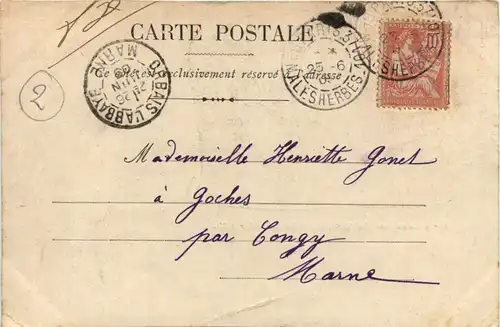 CARTE POSTALE
Ce côté est exclusivement réservé à l'adresse
ORBAIS L'ABBAYE
MARNE
25 -6
MALESHERBES
2
Mademoiselle Henriette Gonet
à Goches
par Congy
Marne